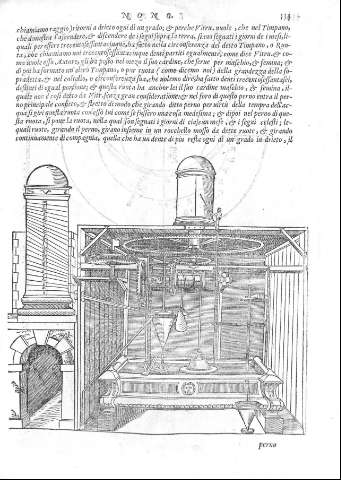 N O N O.
chiamiamo raggio, ritorni a drieto ogni dì un grado; & perche Vitru. vuole, che nel Timpano,
che dimostra l'ascendere, & discendere de i segni sopra la terra, sieno segnati i giorni de i mesi, li
quali per essere trecentosessantacinque, ha fatto ne la circonferenza del detto Timpano, o Ruo-
ta, che chiamiamo noi trecentosessantacinque denti partiti egualmente, come dice Vitru. & co-
me vuole esso Autore, gli ha posto nel mezo il suo cardine, che serue per maschio, & femina; &
di poi ha formato un'altro Timpano, o pur ruota (come dicemo noi) della grandezza della so-
pradetta, & nel orlo di o circonferenza sua, che uedemo divisa ha fatto denti
distinti di egual portione; & questa ruota ha anchor lei il suo cardine maschio, & femina, il
quale non è posto da Vitr. senza gran consideratione; & nel foro di questo perno entra il per-
no principale
qua fa gire questa ruota con esso lui come se fussero una cosa medesima; & dipoi nel perno di que-
sta ruota, si pone la ruota, nella qual son segnati i giorni di ciascun mese, & i segni celesti; le-
quali ruote, girando il perno, girano insieme in un rocchello mosso da dette ruote, & girando
continuamente di compagnia, quella che ha un dente di piu resta ogni dì un grado in drieto, il
perno